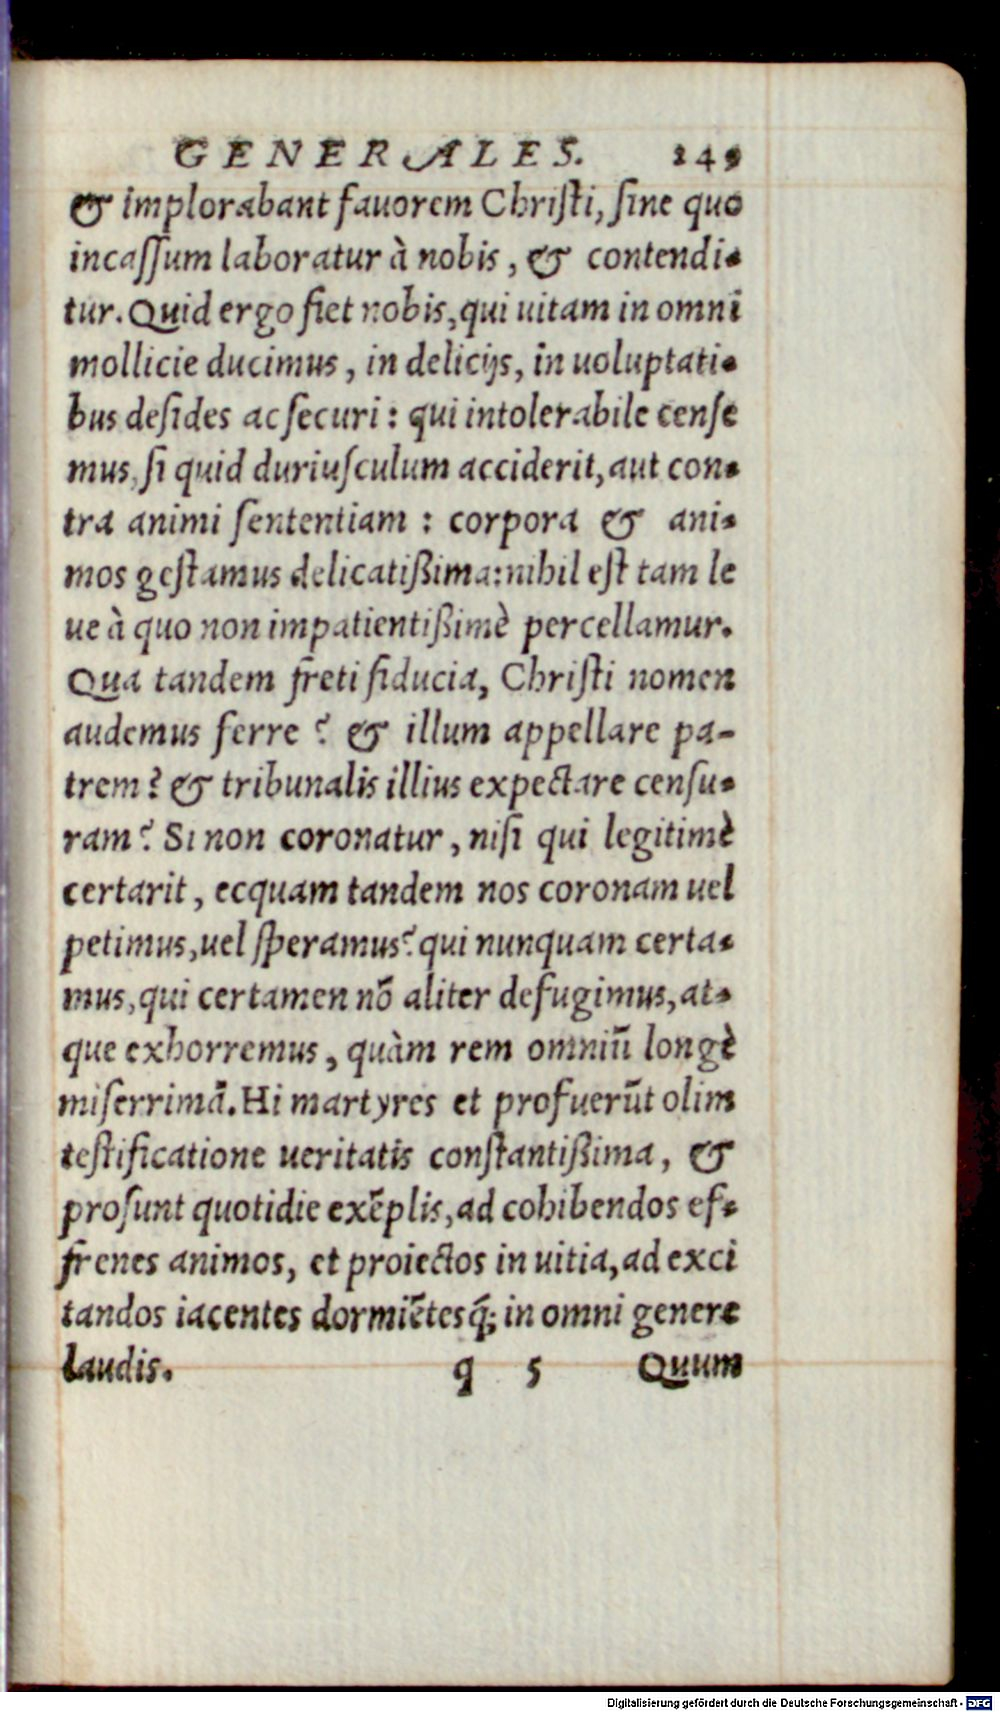 GENERALES. 249
& implorabant fauorem Chriſti, ſine quo
incaſſum laboratur à nobis, & contendi-
tur. Quid ergo fiet nobis, qui uitam in omni
mollicie ducimus, in delicijs, in uoluptati-
bus deſides ac ſecuri: qui intolerabile cenſe
mus, ſi quid duriuſculum acciderit, aut con-
tra animi ſententiam: corpora & ani-
mos geſtamus delicatißima: nihil eſt tam le
ue à quo non impatientißimè percellamur.
Qua tandem freti fiducia, Chriſti nomen
audemus ferre? & illum appellare pa-
trem? & tribunalis illius expectare cenſu-
ram? Si non coronatur, niſi qui legitimè
certarit, ecquam tandem nos coronam uel
petimus, uel ſperamus? qui nunquam certa-
mus, qui certamen nō aliter defugimus, at-
que exhorremus, quàm rem omniū longè
miſerrimā. Hi martyres et profuerūt olim
teſtificatione ueritatis conſtantißima, &
proſunt quotidie exēplis, ad cohibendos ef-
frenes animos, et proiectos in uitia, ad exci
tandos iacentes dormiētesq́; in omni genere
laudis. q 5 Quum
Digitalisierung gefördert durch die Deutsche Forschungsgemeinschaft - DFG